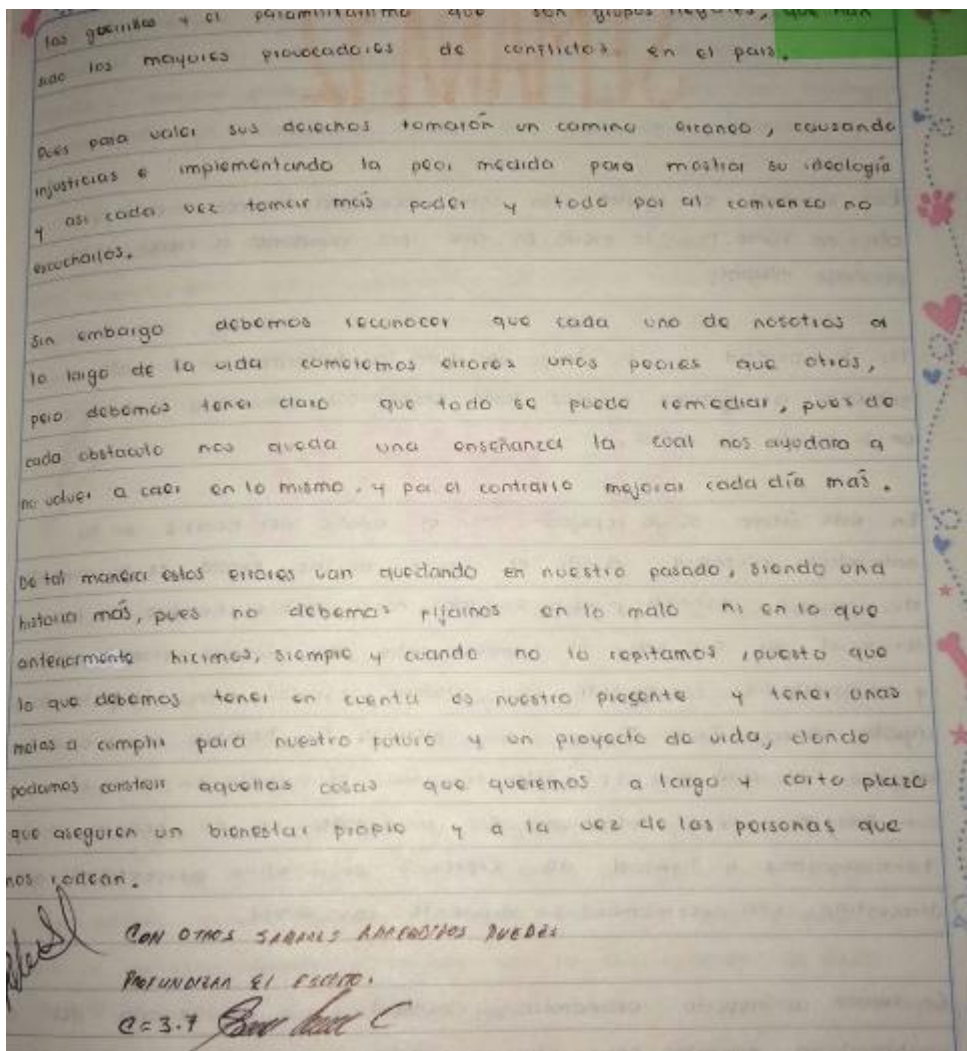 las guerrillas y el paramilitarismo que son grupos ilegales, que han
sido los mayores provocadores de conflictos en el pais.
Pues para valer sus derechos tomarón un camino erroneo, causando
injusticias e implementando la peor medida para mostrar su ideología
y asi cada vez tomar más poder y todo por al comienzo no
escucharlos.
Sin embargo debemos reconocer que cada uno de nosotros a
lo largo de la vida cometemos errores unos peores que otros,
pero debemos tener claro que todo se puede remediar, pues de
cada obstaculo nos queda una enseñanza la cual nos ayudara a
no volver a caer en lo mismo. y por el contrario mejorar cada día más.
De tal manera estos errores van quedando en nuestro pasado, siendo una
historia más, pues no debemos fijarnos en lo malo ni en lo que
anteriormente hicimos, siempre y cuando no lo repitamos, puesto que
lo que debemos tener en cuenta es nuestro presente y tener unas
metas a cumplir para nuestro futuro y un proyecto de vida, donde
podamos construir aquellas cosas que queremos a largo y corto plazo
que aseguren un bienestar propio y a la vez de las personas que
nos rodean.
CON OTROS SABERES APRENDIDOS PUEDES
PROFUNDIZAR EL ESCRITO.
C=3.7